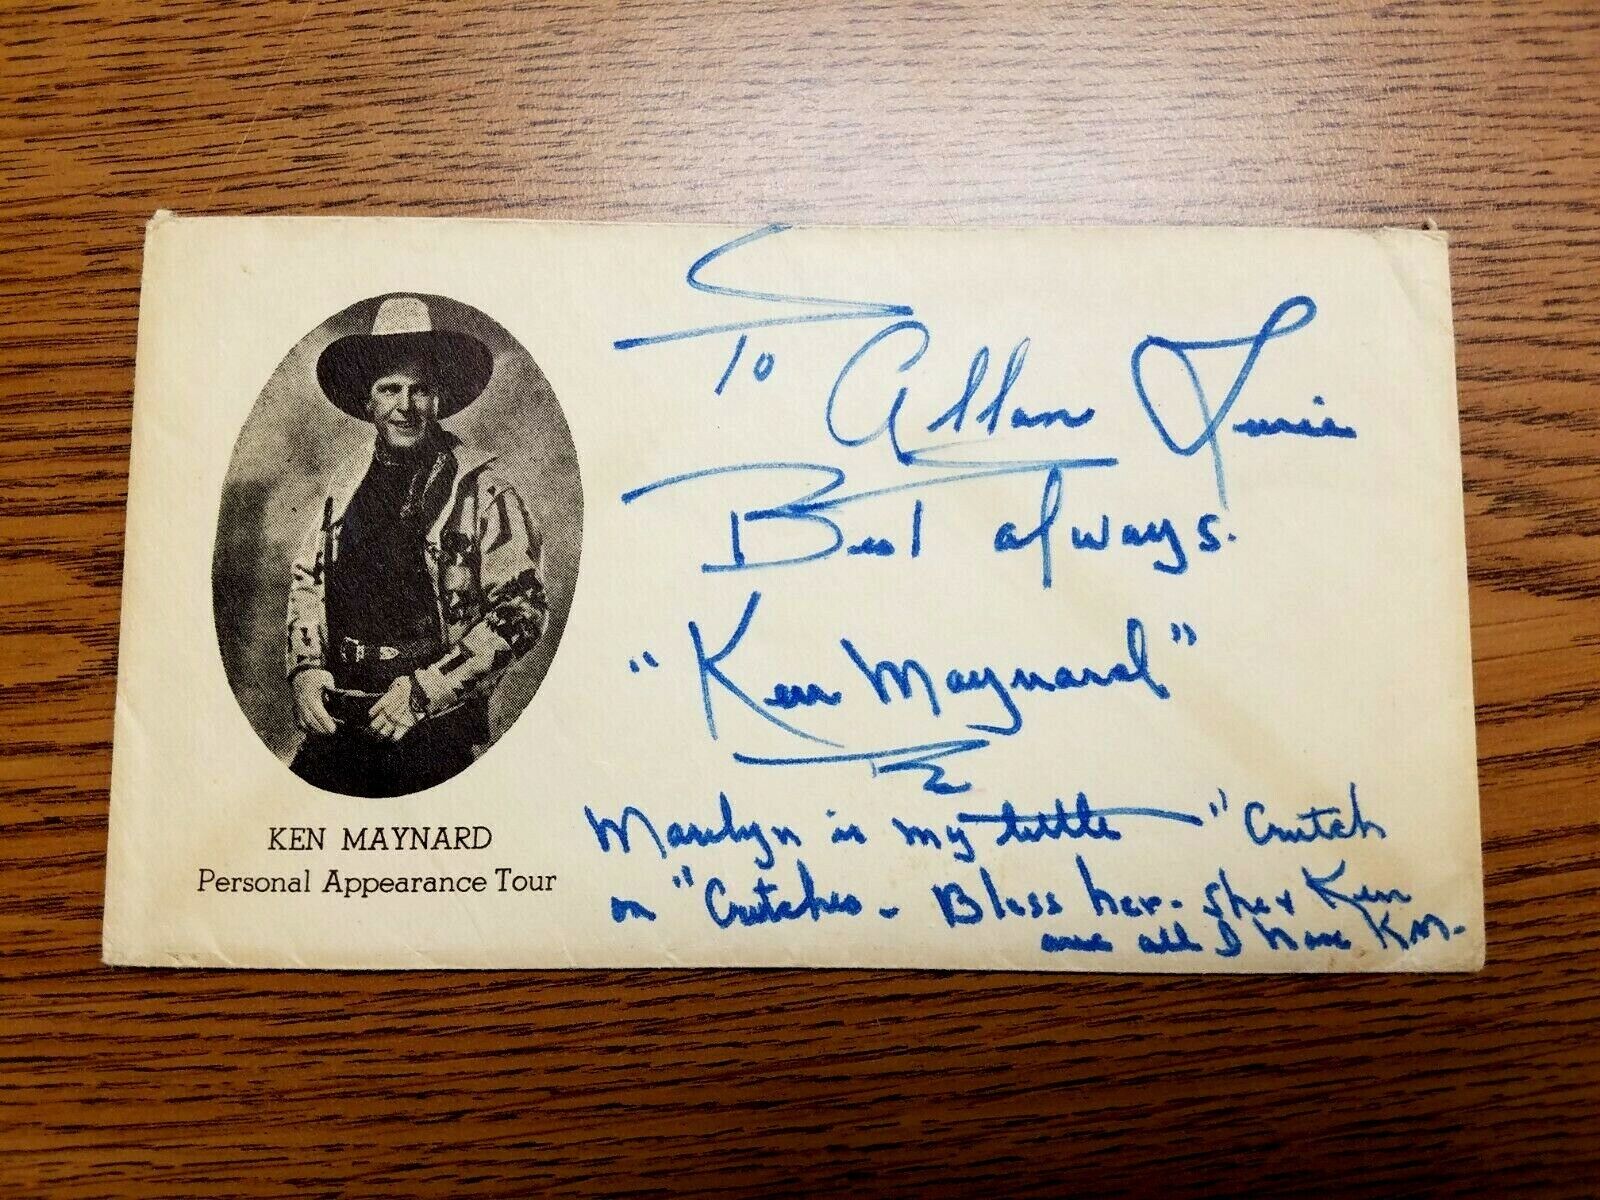 To Allan Lurie
Best always.
"Ken Maynard"
Marilyn is my little "Crutch
on "Crutches - Bless her. She + Ken
are all I have KM-
KEN MAYNARD
Personal Appearance Tour